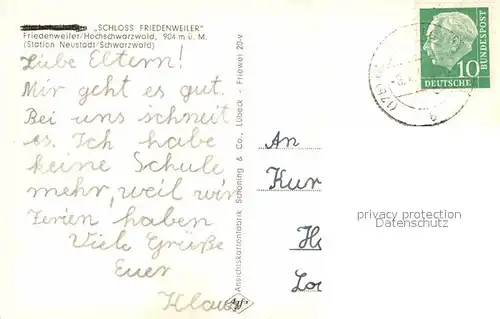 „SCHLOSS FRIEDENWEILER"
Friedenweiler/Hochschwarzwald, 904 m ü. M.
(Station Neustadt/Schwarzwald)
Liebe Eltern!
Mir geht es gut.
Bei uns schneit
es. Ich habe
keine Schule
mehr, weil wir
Ferien haben
Viele Grüße
Euer
Klaus
Ansichtskartenfabrik Schöning & Co., Lübeck - Friewei 20-v
DEUTSCHE
BUNDESPOST
10
An
Kur
privacy protection
Datenschutz